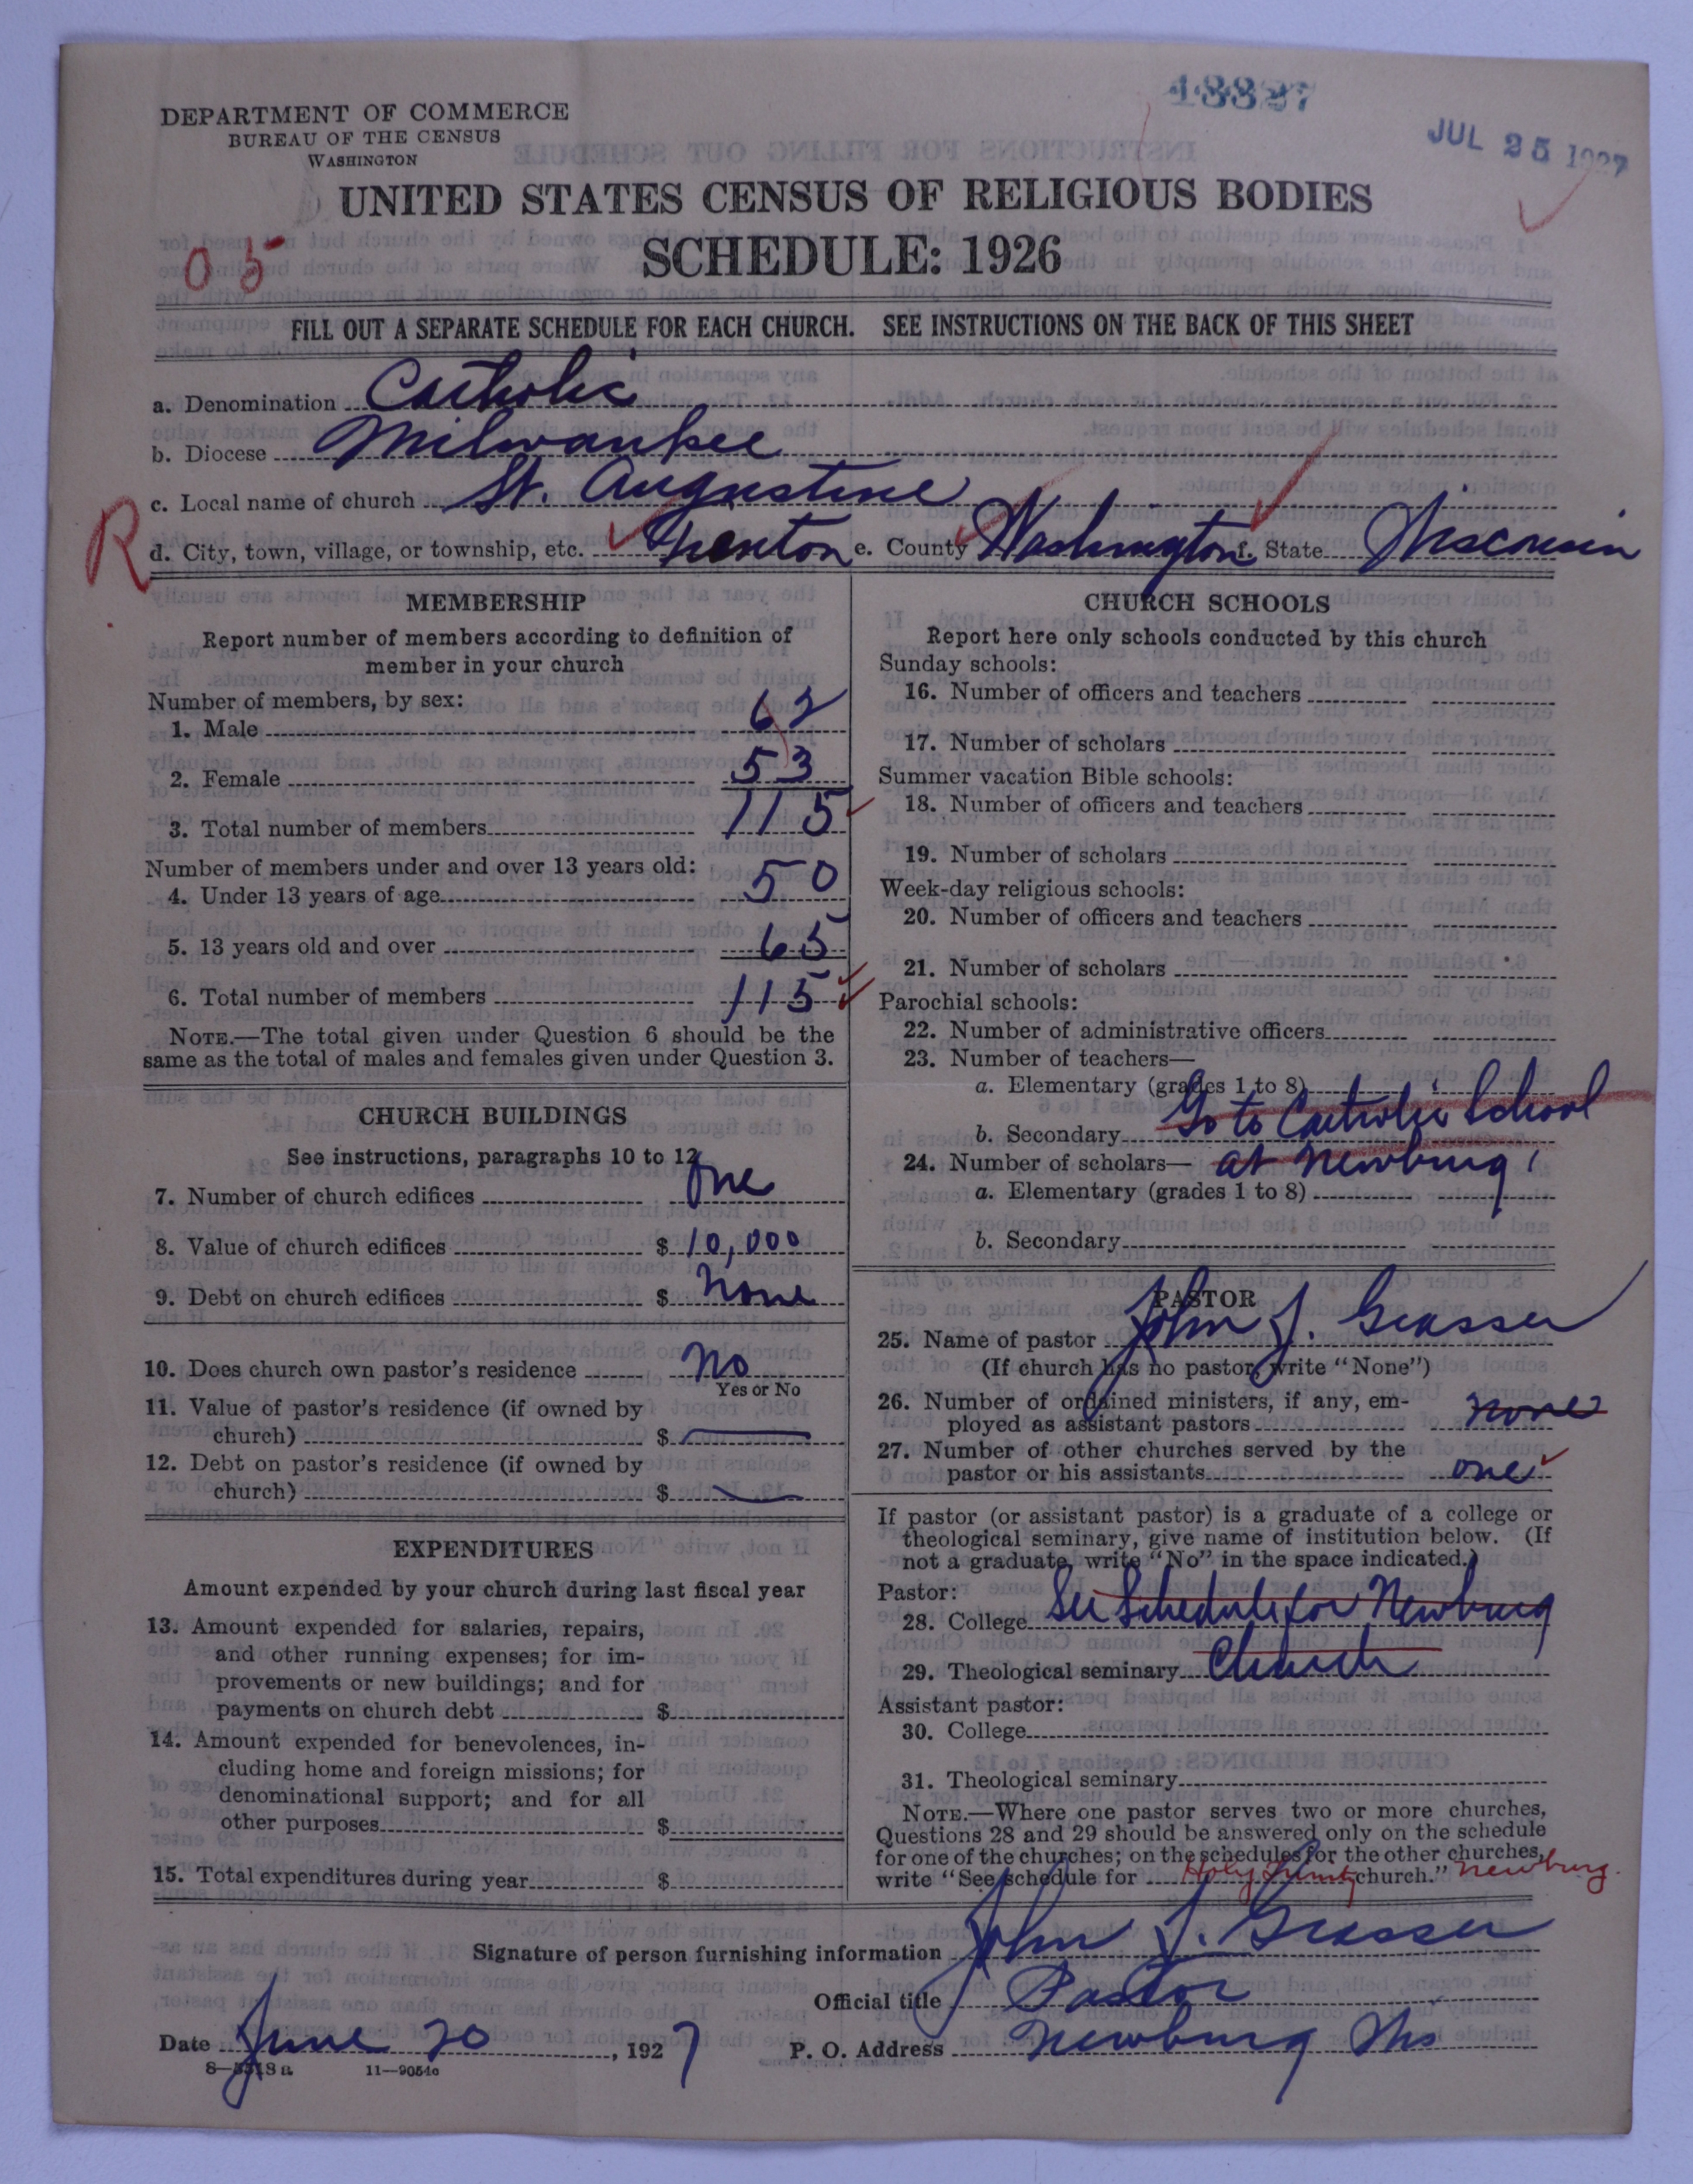 48827
JUL 25 1927
DEPARTMENT OF COMMERCE
BUREAU OF THE CENSUS
WASHINGTON
UNITED STATES CENSUS OF RELIGIOUS BODIES
05
SCHEDULE: 1926
FILL OUT A SEPARATE SCHEDULE FOR EACH CHURCH. SEE INSTRUCTIONS ON THE BACK OF THIS SHEET
a. Denomination Catholic
b. Diocese Milwaukee
c. Local name of church St. Augustine
R d. City, town, village, or township, etc. Trenton e. County Washington f. State Wisconsin
MEMBERSHIP
Report number of members according to definition of
member in your church
Number of members, by sex:
1. Male 62
2. Female 53
3. Total number of members 115
Number of members under and over 13 years old:
4. Under 13 years of age 50
5. 13 years old and over 65
6. Total number of members 115
NOTE.—The total given under Question 6 should be the
same as the total of males and females given under Question 3.
CHURCH BUILDINGS
See instructions, paragraphs 10 to 12
7. Number of church edifices One
8. Value of church edifices $ 10,000
9. Debt on church edifices $ None
10. Does church own pastor's residence No
Yes or No
11. Value of pastor's residence (if owned by
church) $
12. Debt on pastor's residence (if owned by
church) $
EXPENDITURES
Amount expended by your church during last fiscal year
13. Amount expended for salaries, repairs,
and other running expenses; for im-
provements or new buildings; and for
payments on church debt $
14. Amount expended for benevolences, in-
cluding home and foreign missions; for
denominational support; and for all
other purposes $
15. Total expenditures during year $
CHURCH SCHOOLS
Report here only schools conducted by this church
Sunday schools:
16. Number of officers and teachers
17. Number of scholars
Summer vacation Bible schools:
18. Number of officers and teachers
19. Number of scholars
Week-day religious schools:
20. Number of officers and teachers
21. Number of scholars
Parochial schools:
22. Number of administrative officers
23. Number of teachers—
a. Elementary (grades 1 to 8)
b. Secondary Go to Catholic School
24. Number of scholars— at Newburg
a. Elementary (grades 1 to 8)
b. Secondary
PASTOR
25. Name of pastor John J. Grasser
(If church has no pastor, write "None")
26. Number of ordained ministers, if any, em-
ployed as assistant pastors none
27. Number of other churches served by the
pastor or his assistants one
If pastor (or assistant pastor) is a graduate of a college or
theological seminary, give name of institution below. (If
not a graduate, write "No" in the space indicated.)
Pastor:
28. College See Schedule for Newburg
29. Theological seminary Church
Assistant pastor:
30. College
31. Theological seminary
NOTE.—Where one pastor serves two or more churches,
Questions 28 and 29 should be answered only on the schedule
for one of the churches; on the schedules for the other churches,
write "See schedule for Holy Trinity church." Newburg.
Signature of person furnishing information John J. Grasser
Official title Pastor
Date June 20, 1927 P. O. Address Newburg Wis
8—5318a 11—9054c